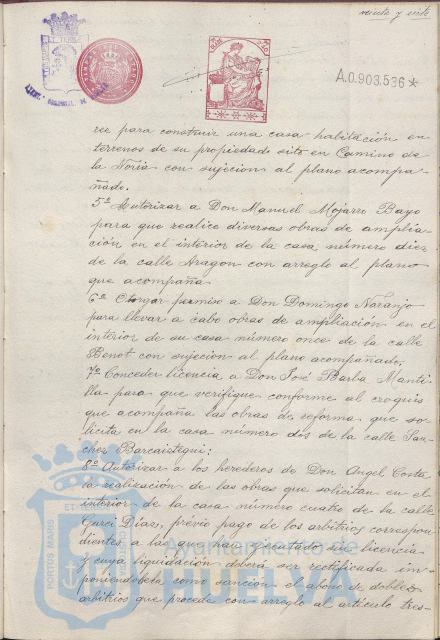 veinte y siete
A.0.903,536*
ree para construir una casa habitación en
terrenos de su propiedad sito en Camino de
la Noria con sujecion al plano acompa-
ñado.
5ª Autorizar a Don Manuel Mojarro Bayo
para que realice diversas obras de amplia-
ción en el interior de la casa, número diez
de la calle Aragon con arreglo al plano
que acompaña
6ª Otorgar permiso a Don Domingo Naranjo
para llevar a cabo obras de ampliación en el
interior de su casa número once de la calle
Benot con sujecion al plano acompañado.
7ª Conceder licencia a Don José Barba Manti-
lla para que verifique conforme al croquis
que acompaña las obras de reforma que so-
licita en la casa número dos de la calle San-
chez Barcaiztegui:
8ª Autorizar a los herederos de Don Angel Costa
la realización de las obras que solicitan en el
interior de la casa número cuatro de la calle
Garci Diaz, previo pago de los arbitrios correspon-
dientes a la que han ejecutado sin licencia
y cuya liquidación deberá ser rectificada im-
poniendosela como sanción el abono de dobles
arbitrios que procede con arreglo al articulo tres-
PORTUS MARIS
Ayuntamiento de
HUELVA